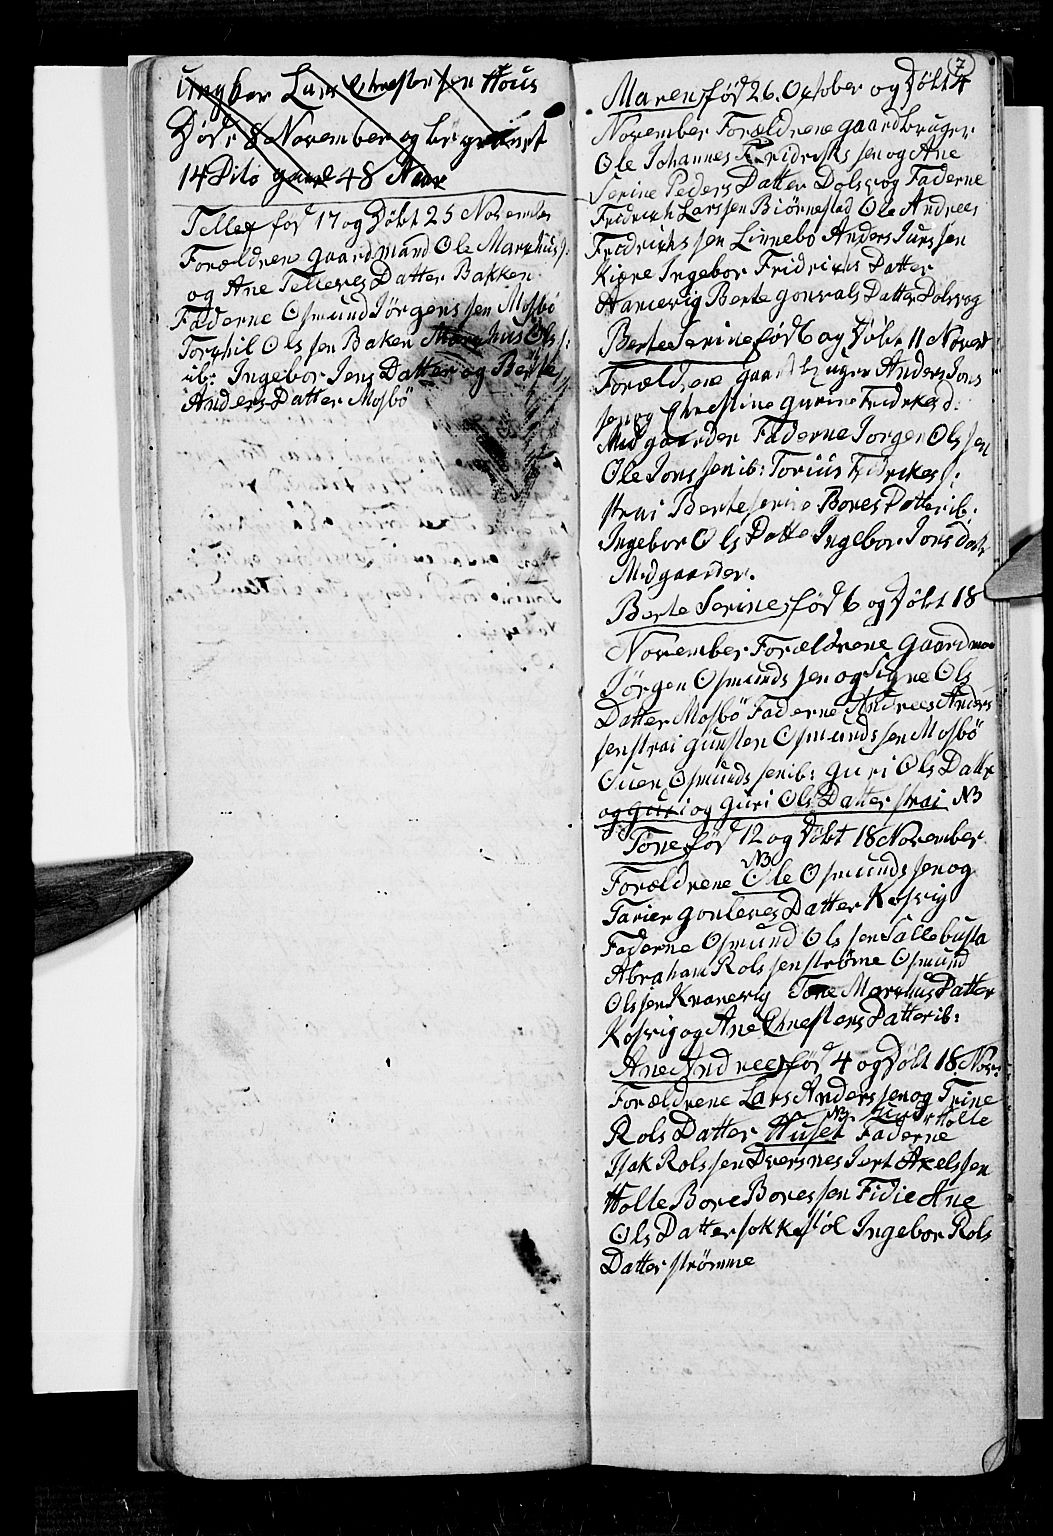 Ungkar Lars Chrestensen Hous
Døde 8 November og begravet
14 Dito gaml 48 Aar
Tellef fød 17 og Døbt 25 November
Forældrene gaardmand Ole Markhus s:
og Ane Tellevs Datter Bakken
Faderne Osmund Jørgenssen Mosbö
Torkil Ols sen Baken Markhus Ols s:
ib: Ingebor Jens Datter og Berte
Anders Datter Mosbö
7
Maren fød 26. October og Døbt 4
November Forældrene gaardbruger
Ole Johannes Fridriks sen og Ane
Serine Peders Datter Dolsvog Faderne
Fridrich Larssen Biørnestad Ole Andreas
Fredrichs sen Linnebo Anders Jurssen
Kiære Ingebor Fridrichs Datter
Hanevig Berte gonvals Datter Dolsvog
Berte Serine fød 6 og Døbt 11 Novem
Forældrene gaardbruger Anders Jons
sen og Chrestine gurine Fridrikes d:
Midgaarden Faderne Jorgen Ols sen
Ole Jons sen ib: Torius Fidrikes s:
strai Berte serine Bores Datter ib:
Ingebor Ols Datte Ingebor Jons dat
Midgaarden.
Berte Serine fød 6 og Døbt 18
November Forældrene gaardman
Jörgen Osmunds sen og Signe Ols
Datter Mosbö Faderne Andreas Anders
sen strai gunsten Osmunds sen Mosbö
Ouen Osmunds sen ib: guri Ols Datter
og guri og guri Ols Datter strai NB
Tone fød 12 og Døbt 18 November
NB
Forældrene Ole Osmunds sen og
Tarier gonleves Datter Kosvig
Faderne Osmund Ols sen Sallebusta
Abraham Rols sen strøme Osmund
Olssen Kranevig Tone Markus Datter
Kosvig og Ane Chrestens Datter ib:
Ane Andrea fød 4 og Døbt 18 Nov:
Forældrene Lars Anders sen og Trine
NB Holte
Rols Datter Huset Faderne
Isak Rols sen Dversnes Jert Axelssen
Holte Bore Boressen Fidie Ane
Ols Datter sokkestöl Ingebor Rols
Datter strömme